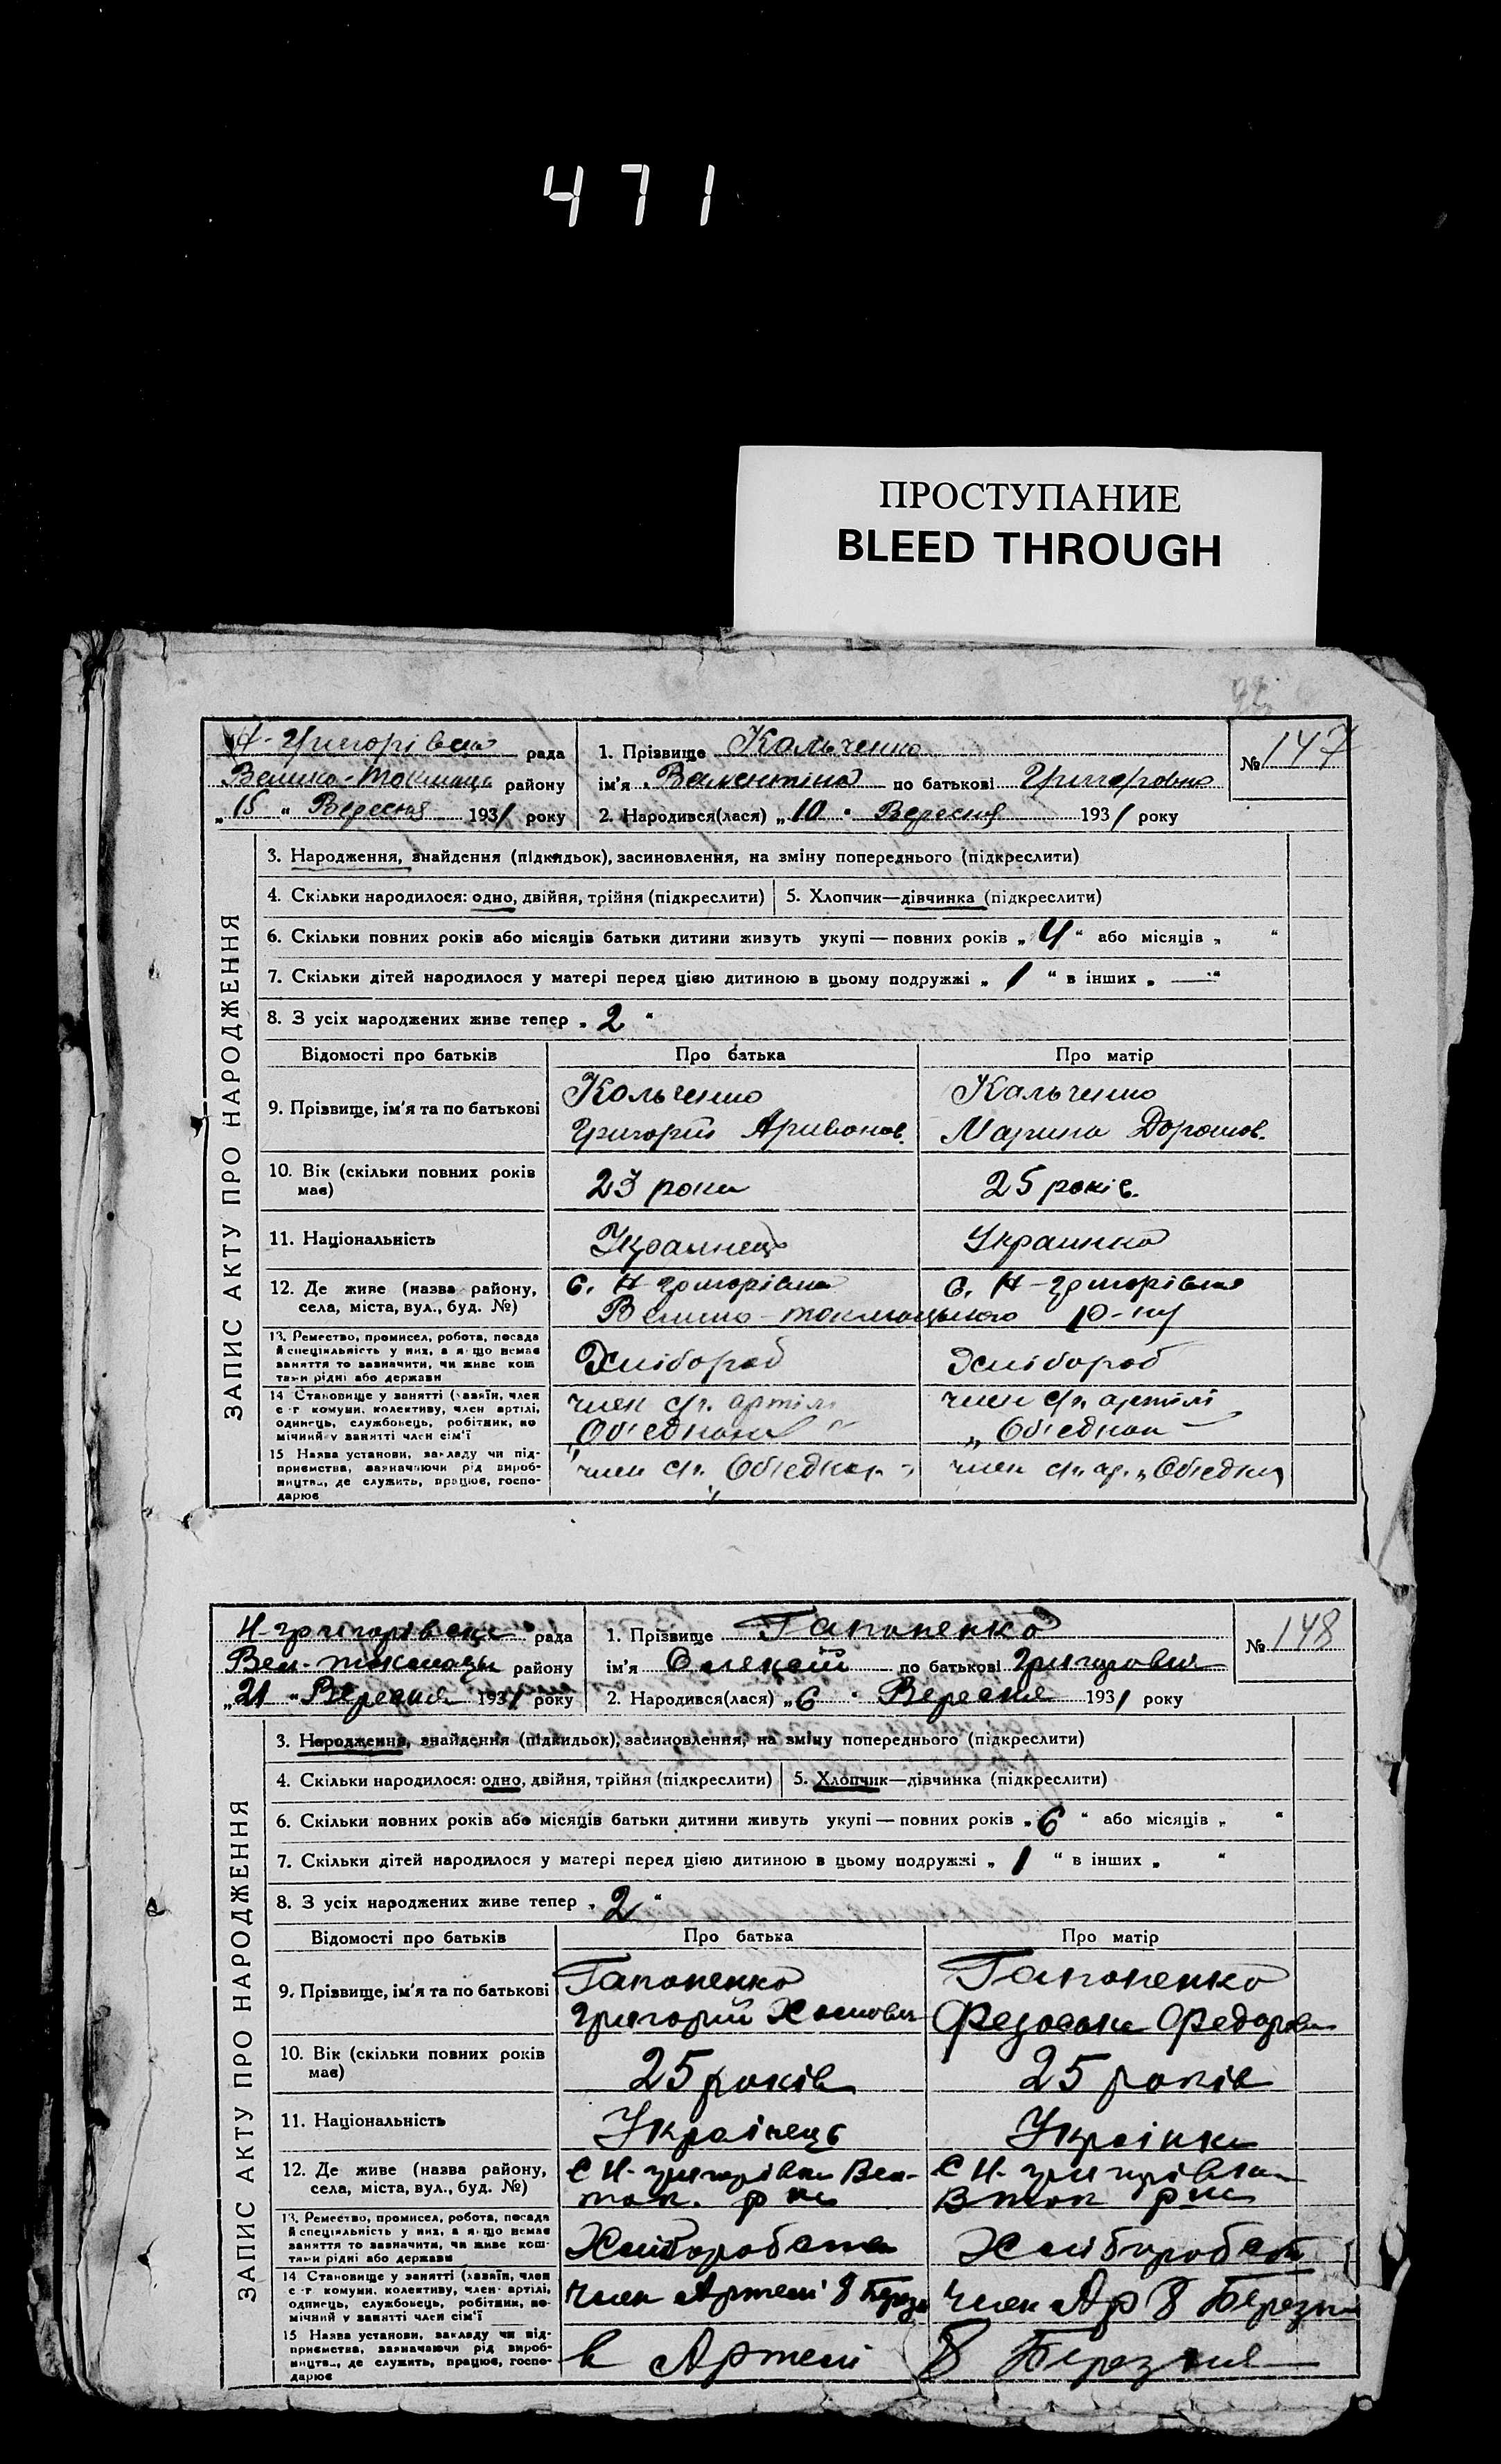 471
ПРОСТУПАНИЕ
BLEED THROUGH
Н-Григорівська рада
Велико-Токмацьк району
„15“ Вересня 1931 року
1. Прізвище Кальченко
ім'я Валентина по батькові Григоровна
2. Народився(лася) „10“ Вересня 1931 року
№ 147
ЗАПИС АКТУ ПРО НАРОДЖЕННЯ
3. Народження, знайдення (підкидьок), засиновлення, на зміну попереднього (підкреслити)
4. Скільки народилося: одно, двійня, трійня (підкреслити) 5. Хлопчик—дівчинка (підкреслити)
6. Скільки повних років або місяців батьки дитини живуть укупі — повних років „4“ або місяців „ “
7. Скільки дітей народилося у матері перед цією дитиною в цьому подружжі „1“ в інших „—“
8. З усіх народжених живе тепер „2“
Відомості про батьків Про батька Про матір
9. Прізвище, ім'я та по батькові
Кальченко Кальченко
Григорій Марина Дорошов.
10. Вік (скільки повних років має) 23 роки 25 років.
11. Національність Українець Українка
12. Де живе (назва району, села, міста, вул., буд. №)
с. Н-Григорівка с. Н-Григорівка
Велико-Токмацького Р-ну
13. Ремество, промисел, робота, посада й спеціяльність у них, а якщо немає заняття то зазначити, чи живе коштами рідні або держави
Хлібороб Хлібороб
14 Становище у занятті (хазяїн, член с-г комуни, колективу, член артілі, одинець, службовець, робітник, помічний у занятті член сім'ї
член с/г. артілі член с/г. артілі
15 Назва установи, закладу чи підприємства, зазначаючи рід виробництва, де служить, працює, господарює
член с/г. член с/г. ар.
Н-Григорівська рада
Вел-Токмацьк району
„21“ Вересня 1931 року
1. Прізвище Гапоненко
ім'я Олексій по батькові Григорович
2. Народився(лася) „6“ Вересня 1931 року
№ 148
ЗАПИС АКТУ ПРО НАРОДЖЕННЯ
3. Народження, знайдення (підкидьок), засиновлення, на зміну попереднього (підкреслити)
4. Скільки народилося: одно, двійня, трійня (підкреслити) 5. Хлопчик—дівчинка (підкреслити)
6. Скільки повних років або місяців батьки дитини живуть укупі — повних років „6“ або місяців „ “
7. Скільки дітей народилося у матері перед цією дитиною в цьому подружжі „1“ в інших „ “
8. З усіх народжених живе тепер „2“
Відомості про батьків Про батька Про матір
9. Прізвище, ім'я та по батькові
Гапоненко Гапоненко
Григорій Федоров
10. Вік (скільки повних років має) 25 років 25 років
11. Національність Українець Українка
12. Де живе (назва району, села, міста, вул., буд. №)
с Н-Григорівка Вел- с Н-Григорівка
ток. р-на В ток р-на
13. Ремество, промисел, робота, посада й спеціяльність у них, а якщо немає заняття то зазначити, чи живе коштами рідні або держави
14 Становище у занятті (хазяїн, член с-г комуни, колективу, член артілі, одинець, службовець, робітник, помічний у занятті член сім'ї
член Артелі 8 Березн член Ар 8 Березня
15 Назва установи, закладу чи підприємства, зазначаючи рід виробництва, де служить, працює, господарює
в Артелі 8 Березня